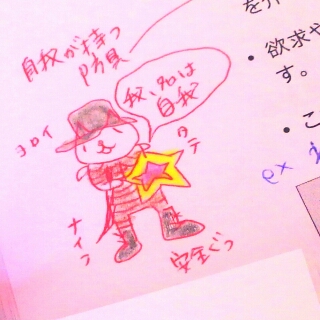 自我が持つ
防具
我、名は
自我
ヨロイ
タテ
ナイフ
安全ぐつ
を介
• 欲求や
す。
• こ
ex